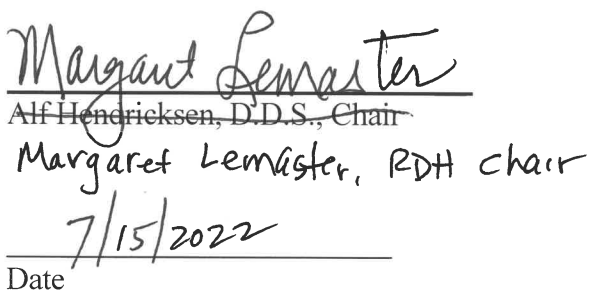 Margaret Lemaster
Alf Hendricksen, D.D.S., Chair
Margaret Lemaster, RDH chair
7/15/2022
Date